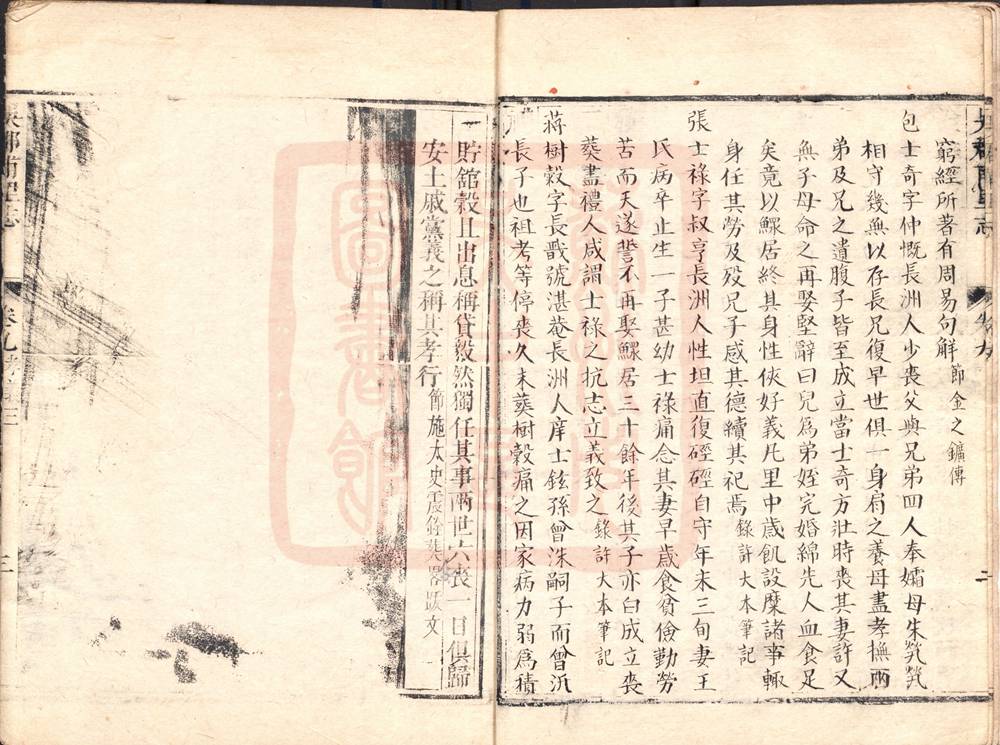 窮經所著有周易句解節金之鑛傳
包士奇字仲慨長洲人少喪父與兄弟四人奉孀母朱煢煢
相守幾無以存長兄復早世俱一身肩之養母盡孝撫兩
弟及兄之遺腹子皆至成立當士奇方壯時喪其妻許又
無子母命之再娶堅辭曰兒為弟姪完婚綿先人血食足
矣竟以鰥居終其身性俠好義凡里中歲飢設糜諸事輒
身任其勞及歿兄子感其德續其祀焉錄許大本筆記
張士祿字叔亨長洲人性坦直復硜硜自守年未三旬妻王
氏病卒止生一子甚幼士祿痛念其妻早歲食貧儉勤勞
苦而夭遂誓不再娶鰥居三十餘年後其子亦白成立喪
葬盡禮人咸謂士祿之抗志立義致之錄許大本筆記
蔣樹穀字長戩號湛菴長洲人庠士鉉孫曾洙嗣子而曾沂
長子也祖考等停喪久未葬樹穀痛之因家病力弱為積
貯舘穀且出息稱貸毅然獨任其事兩世六喪一日俱歸
安土戚黨義之稱其孝行節施太史
跋文
吳郡甫里志
卷九
三
卷九
二